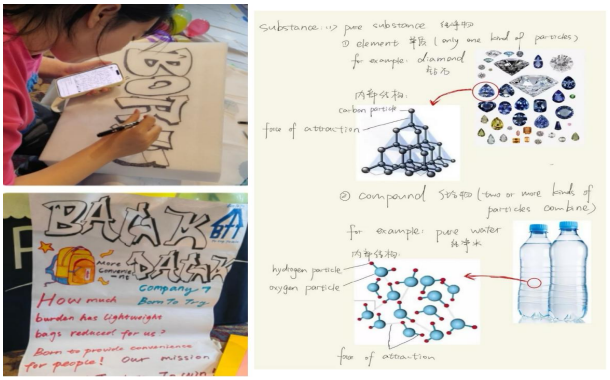 BORN
BACK
PACK
BTT
More
Convenie
-nt
Company 7
Born To Try
How much
burden has lightweight
bags reduced for us?
Born to provide convenience
for people! Our mission
Substance: (1) pure substance 纯净物
① element 单质 (only one kind of particles)
for example: diamond
钻石
内部结构:
carbon particle
foce of attraction
② compound (two or more kinds of
particles combine)
for example: pure water
纯净水
内部结构:
hydrogen particle
oxygen particle
foce of attraction